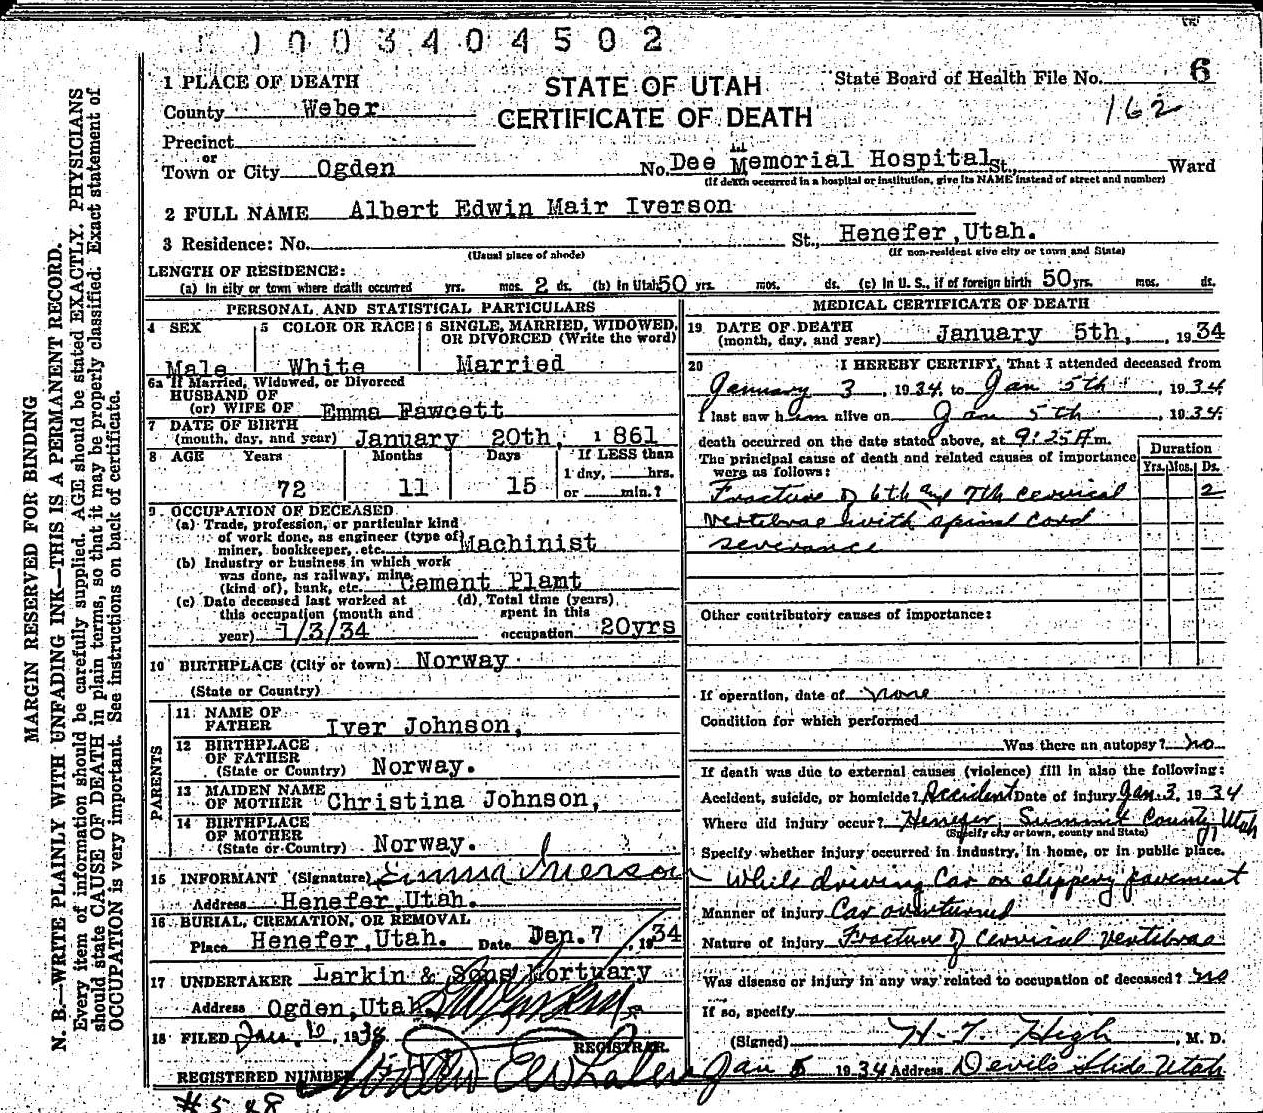 1003404502
STATE OF UTAH
CERTIFICATE OF DEATH
State Board of Health File No. 6
162
1 PLACE OF DEATH
County Weber
Precinct
or
Town or City Ogden No. Dee Memorial Hospital St., Ward
(If death occurred in a hospital or institution, give its NAME instead of street and number)
2 FULL NAME Albert Edwin Mair Iverson
3 Residence: No. St., Henefer, Utah.
(Usual place of abode) (If non-resident give city or town and State)
LENGTH OF RESIDENCE:
(a) In city or town where death occurred yrs. mos. 2 ds. (b) In Utah 50 yrs. mos. ds. (c) In U. S., if of foreign birth 50 yrs. mos. ds.
PERSONAL AND STATISTICAL PARTICULARS
4 SEX 5 COLOR OR RACE 6 SINGLE, MARRIED, WIDOWED,
OR DIVORCED (Write the word)
Male White Married
6a If Married, Widowed, or Divorced
HUSBAND OF
(or) WIFE OF Emma Fawcett
7 DATE OF BIRTH
(month, day, and year) January 20th, 1861
8 AGE Years Months Days If LESS than
1 day, hrs.
72 11 15 or min.?
9 OCCUPATION OF DECEASED
(a) Trade, profession, or particular kind
of work done, as engineer (type of)
miner, bookkeeper, etc. Machinist
(b) Industry or business in which work
was done, as railway, mine
(kind of), bank, etc. Cement Plamt
(c) Date deceased last worked at (d) Total time (years)
this occupation (month and spent in this
year) 1/3/34 occupation 20yrs
10 BIRTHPLACE (City or town) Norway
(State or Country)
PARENTS
11 NAME OF
FATHER Iver Johnson,
12 BIRTHPLACE
OF FATHER
(State or Country) Norway.
13 MAIDEN NAME
OF MOTHER Christina Johnson,
14 BIRTHPLACE
OF MOTHER
(State or Country) Norway.
15 INFORMANT (Signature) Emma Iverson
Address Henefer, Utah.
16 BURIAL, CREMATION, OR REMOVAL
Place Henefer, Utah. Date Jan. 7, 1934
17 UNDERTAKER Larkin & Sons Mortuary
Address Ogden, Utah
18 FILED Jan. 10, 1934
REGISTRAR.
REGISTERED NUMBER
MEDICAL CERTIFICATE OF DEATH
19 DATE OF DEATH
(month, day, and year) January 5th, , 1934
20 I HEREBY CERTIFY, That I attended deceased from
January 3, 1934, to Jan 5th, 1934
I last saw him alive on Jan 5th, 1934
death occurred on the date stated above, at 9:25 A m.
The principal cause of death and related causes of importance
were as follows:
Duration
Yrs. Mos. Ds.
Fracture of 6th and 7th cervical 2
vertebrae with spinal cord
severance
Other contributory causes of importance:
If operation, date of none
Condition for which performed
Was there an autopsy? no
If death was due to external causes (violence) fill in also the following:
Accident, suicide, or homicide? Accident Date of injury Jan. 3, 1934
Where did injury occur? Henefer, Summit County, Utah
(Specify city or town, county and State)
Specify whether injury occurred in industry, in home, or in public place.
While driving car on slippery pavement
Manner of injury Car overturned
Nature of injury Fracture of cervical vertebrae
Was disease or injury in any way related to occupation of deceased? no
If so, specify
(Signed) H. T. High, M. D.
Jan 5 1934 Address Devils Slide Utah
MARGIN RESERVED FOR BINDING
N. B.—WRITE PLAINLY WITH UNFADING INK—THIS IS A PERMANENT RECORD.
Every item of information should be carefully supplied. AGE should be stated EXACTLY. PHYSICIANS
should state CAUSE OF DEATH in plain terms, so that it may be properly classified. Exact statement of
OCCUPATION is very important. See instructions on back of certificate.